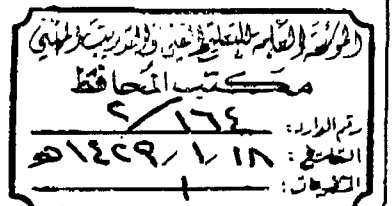 المؤسسة العامة للتعليم الفني والتدريب المهني
مكتب المحافظ
رقم الوارد: ٢/١٦٤
التاريخ: ١٤٢٩/١/١٨هـ
المرفقات: ١